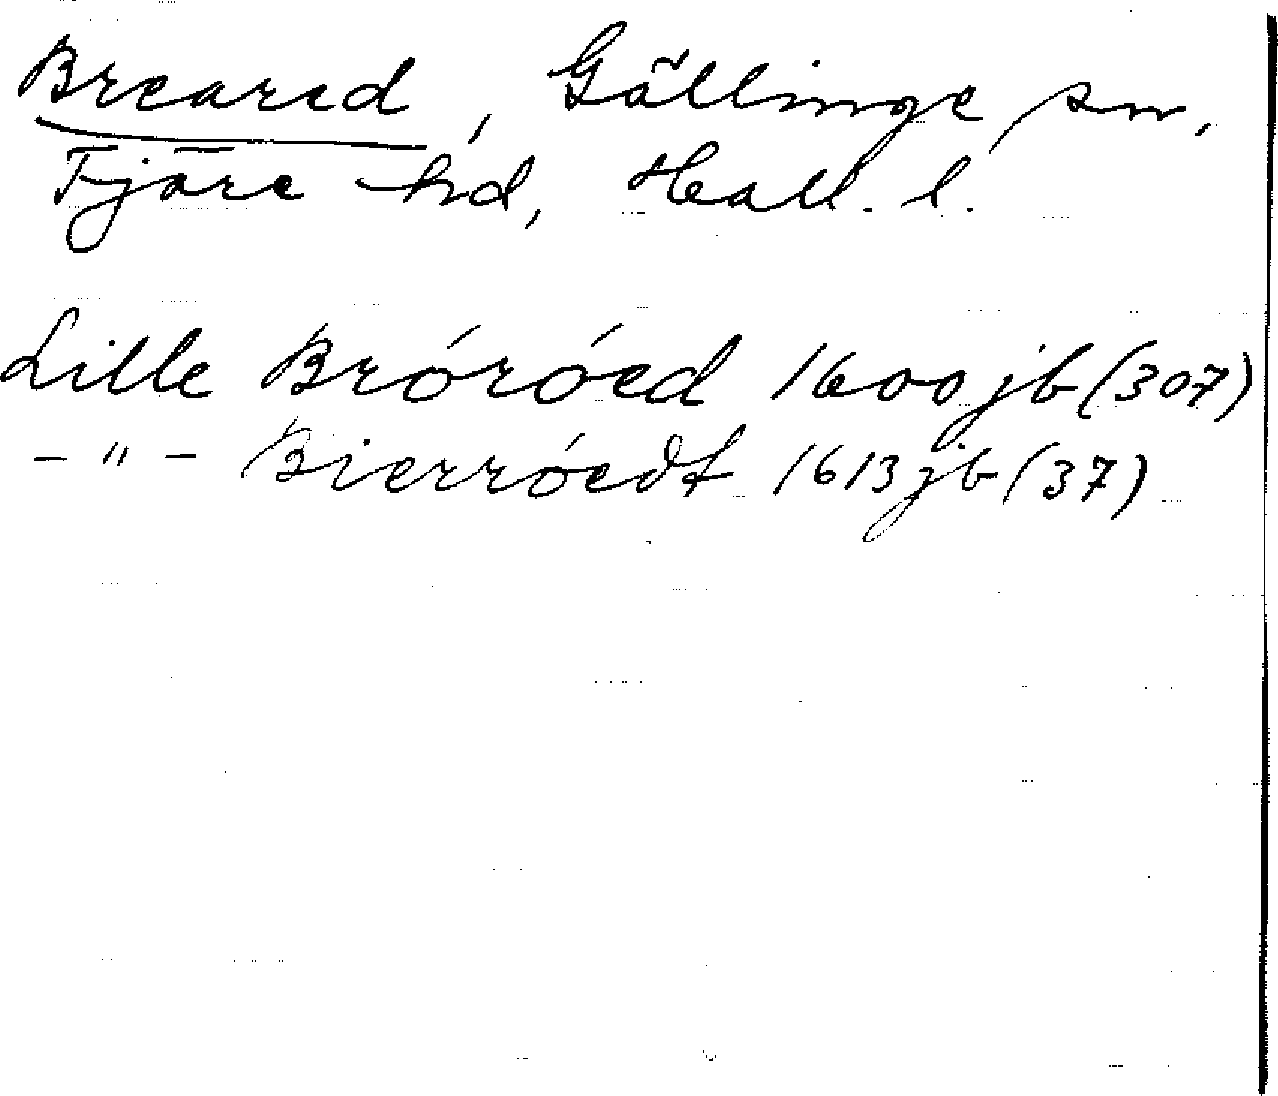 Breared, Gällinge sn,
Fjäre hd, Hall. l.
Lille Bróróed 1600 jb (307)
- " - Bierróedt 1613 jb (37)